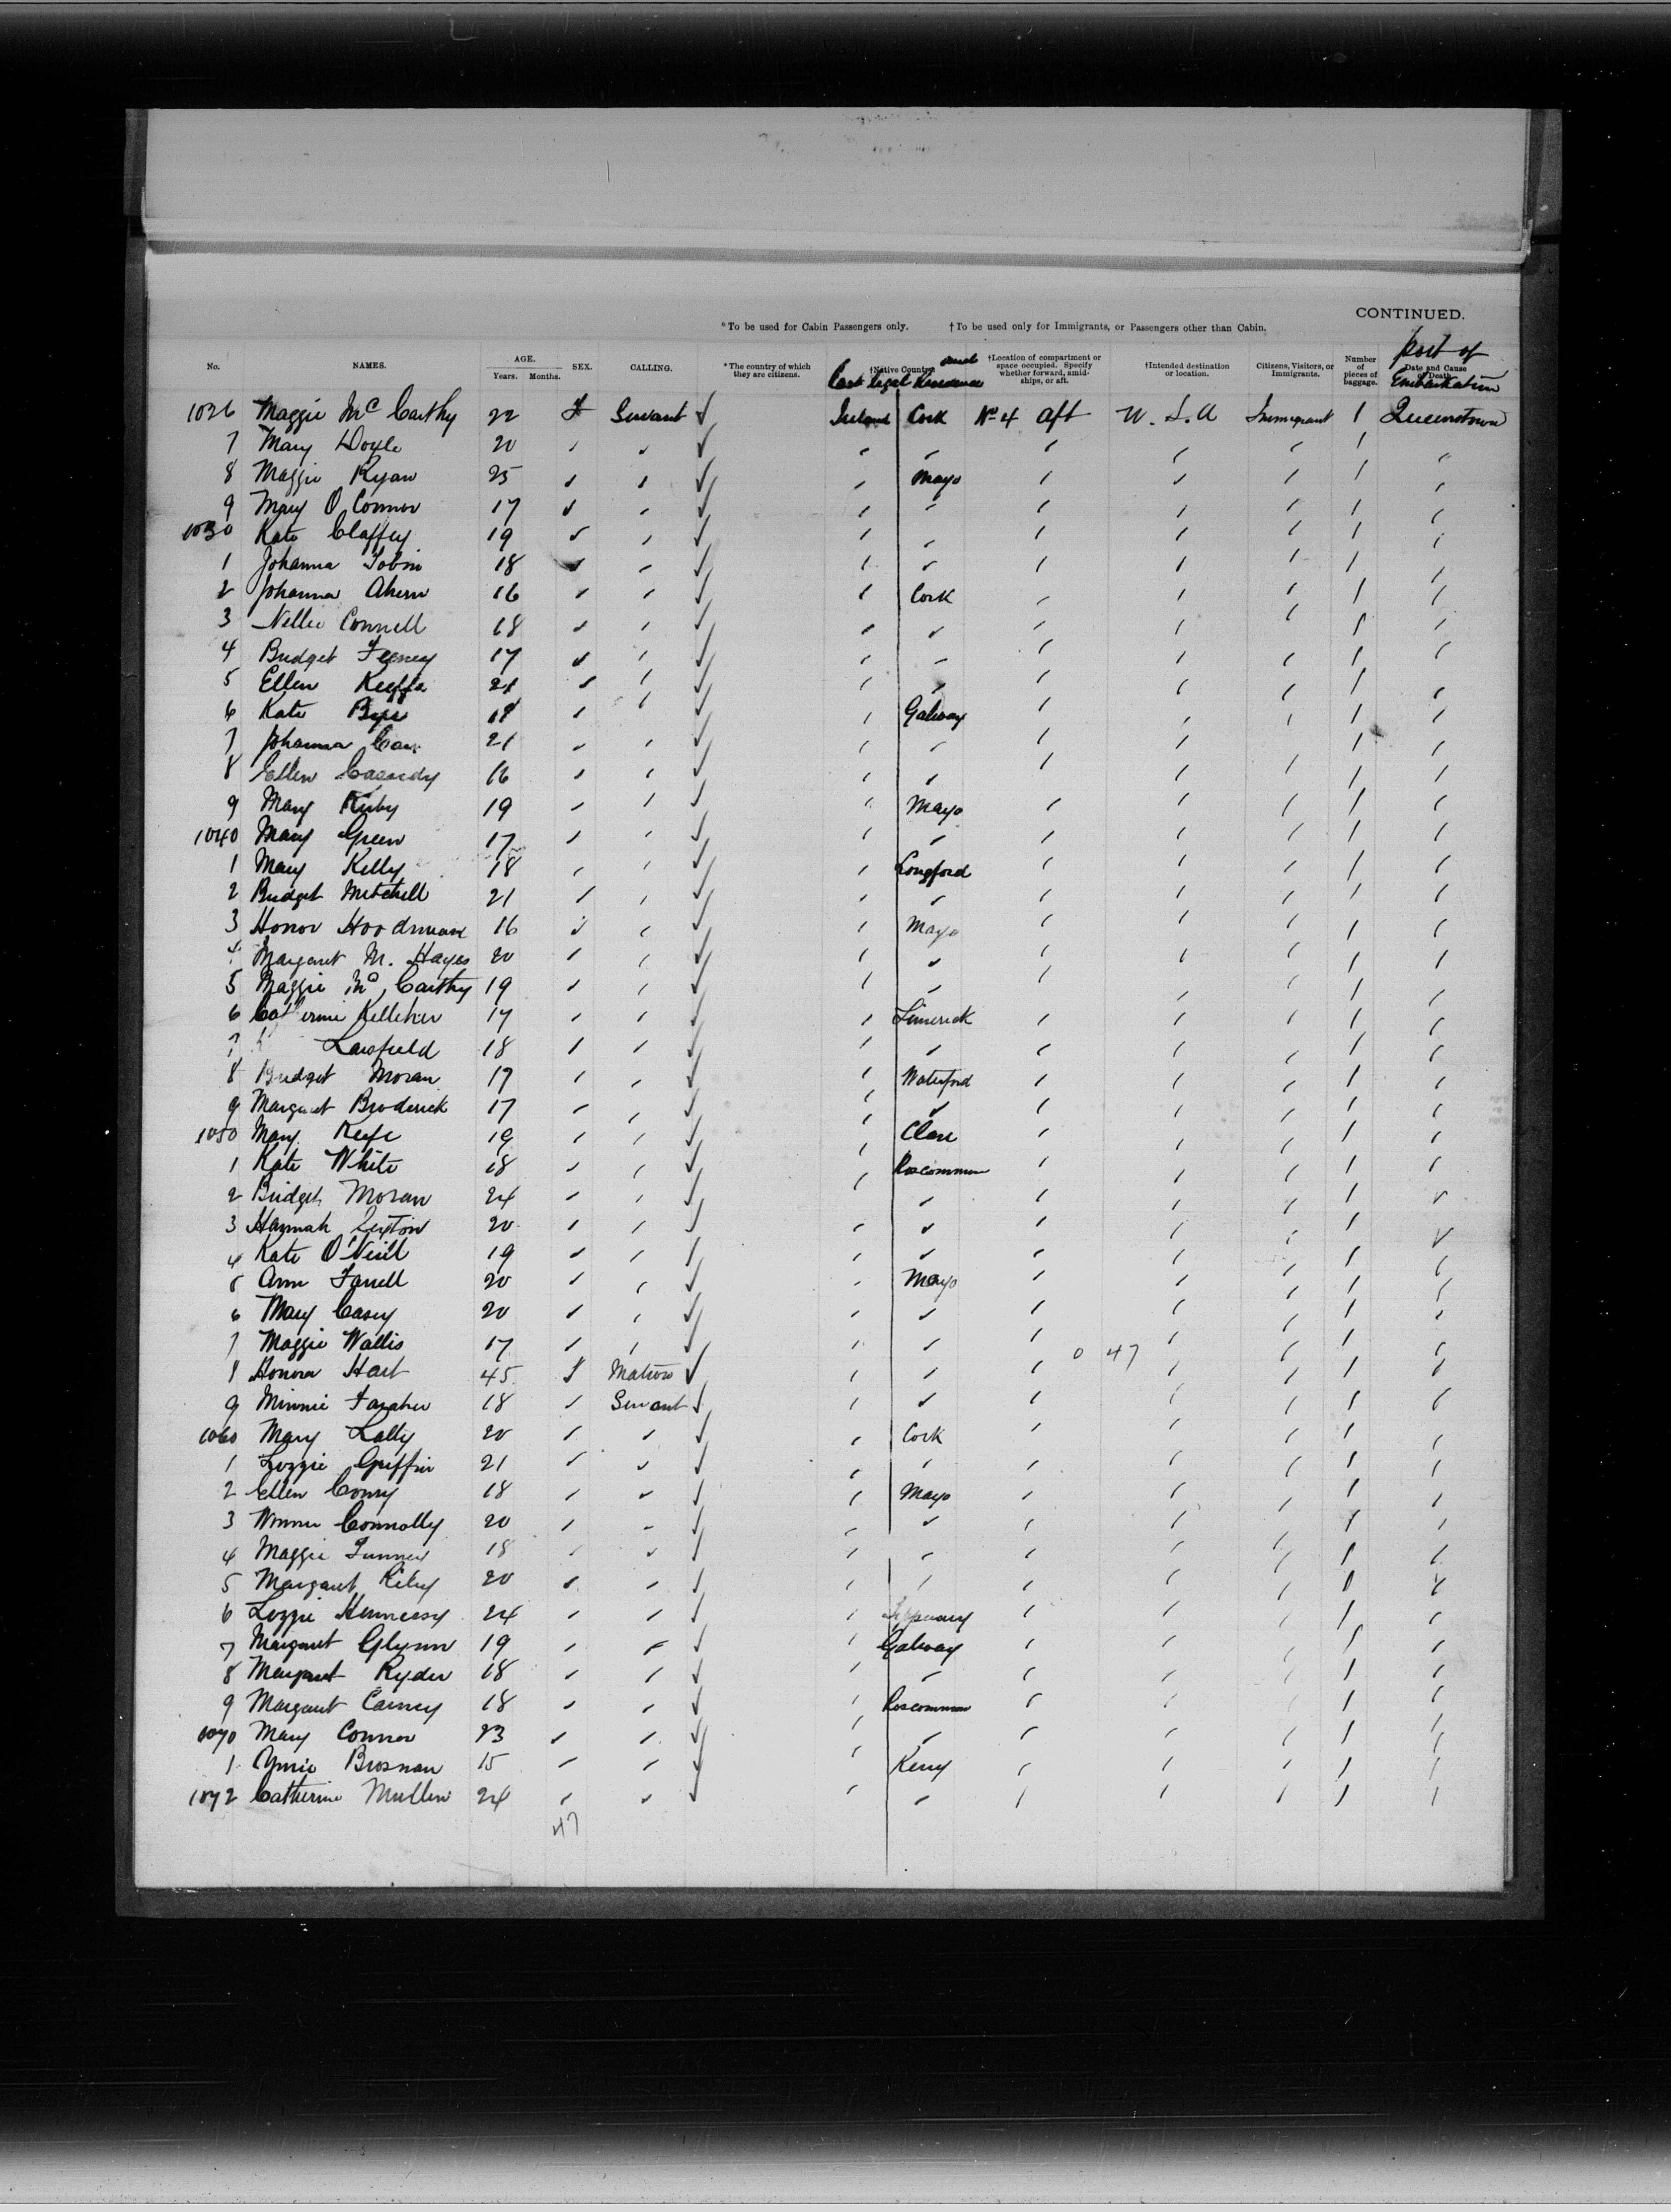 CONTINUED.
*To be used for Cabin Passengers only. †To be used only for Immigrants, or Passengers other than Cabin.
No. NAMES. AGE. Years. Months. SEX. CALLING. *The country of which they are citizens. †Native Country. and Last legal Residence †Location of compartment or space occupied. Specify whether forward, amidships, or aft. †Intended destination or location. Citizens, Visitors, or Immigrants. Number of pieces of baggage. Date and Cause of Death. Port of Embarkation
1026 Maggie Mc Carthy 22 F Servant Ireland Cork No 4 aft U.S.A Immigrant 1 Queenstown
7 Mary Doyle 20 1
8 Maggie Ryan 25 Mayo 1
9 Mary O Connor 17 1
1030 Kate Claffey 19 1
1 Johanna Tobin 18 1
2 Johanna Ahern 16 Cork 1
3 Nellie Connell 18 1
4 Bridget Feeney 17 1
5 Ellen Keeffe 21 1
6 Kate 18 Galway 1
7 Johanna 21 1
8 Ellen Cassidy 16 1
9 Mary Kirby 19 Mayo 1
1040 Mary Green 17 1
1 Mary Kelly 18 Longford 1
2 Bridget Mitchell 21 1
3 Honor 16 Mayo 1
4 Margaret M. Hayes 20 1
5 Maggie Mc Carthy 19 1
6 Catherine Kelleher 17 Limerick 1
7 18 1
8 Bridget Moran 17 Waterford 1
9 Margaret Broderick 17 1
1050 Mary Keefe 19 Clare 1
1 Kate White 18 Roscommon 1
2 Bridget Moran 24 1
3 Hannah Sexton 20 1
4 Kate O'Neill 19 1
5 Ann Farrell 20 Mayo 1
6 Mary Casey 20 1
7 Maggie Wallis 17 1
0 47
8 Honora Hart 45 F Matron 1
9 Minnie 18 Servant 1
1060 Mary Lally 20 Cork 1
1 Lizzie Griffin 21 1
2 Ellen Conry 18 Mayo 1
3 Winnie Connolly 20 1
4 Maggie 18 1
5 Margaret 20 1
6 Lizzie Hennessy 24 Tipperary 1
7 Margaret Glynn 19 Galway 1
8 Margaret Ryder 18 1
9 Margaret Carney 18 Roscommon 1
1070 Mary Connor 23 1
1 Annie Brosnan 15 Kerry 1
1072 Catherine Mullen 24 1
47